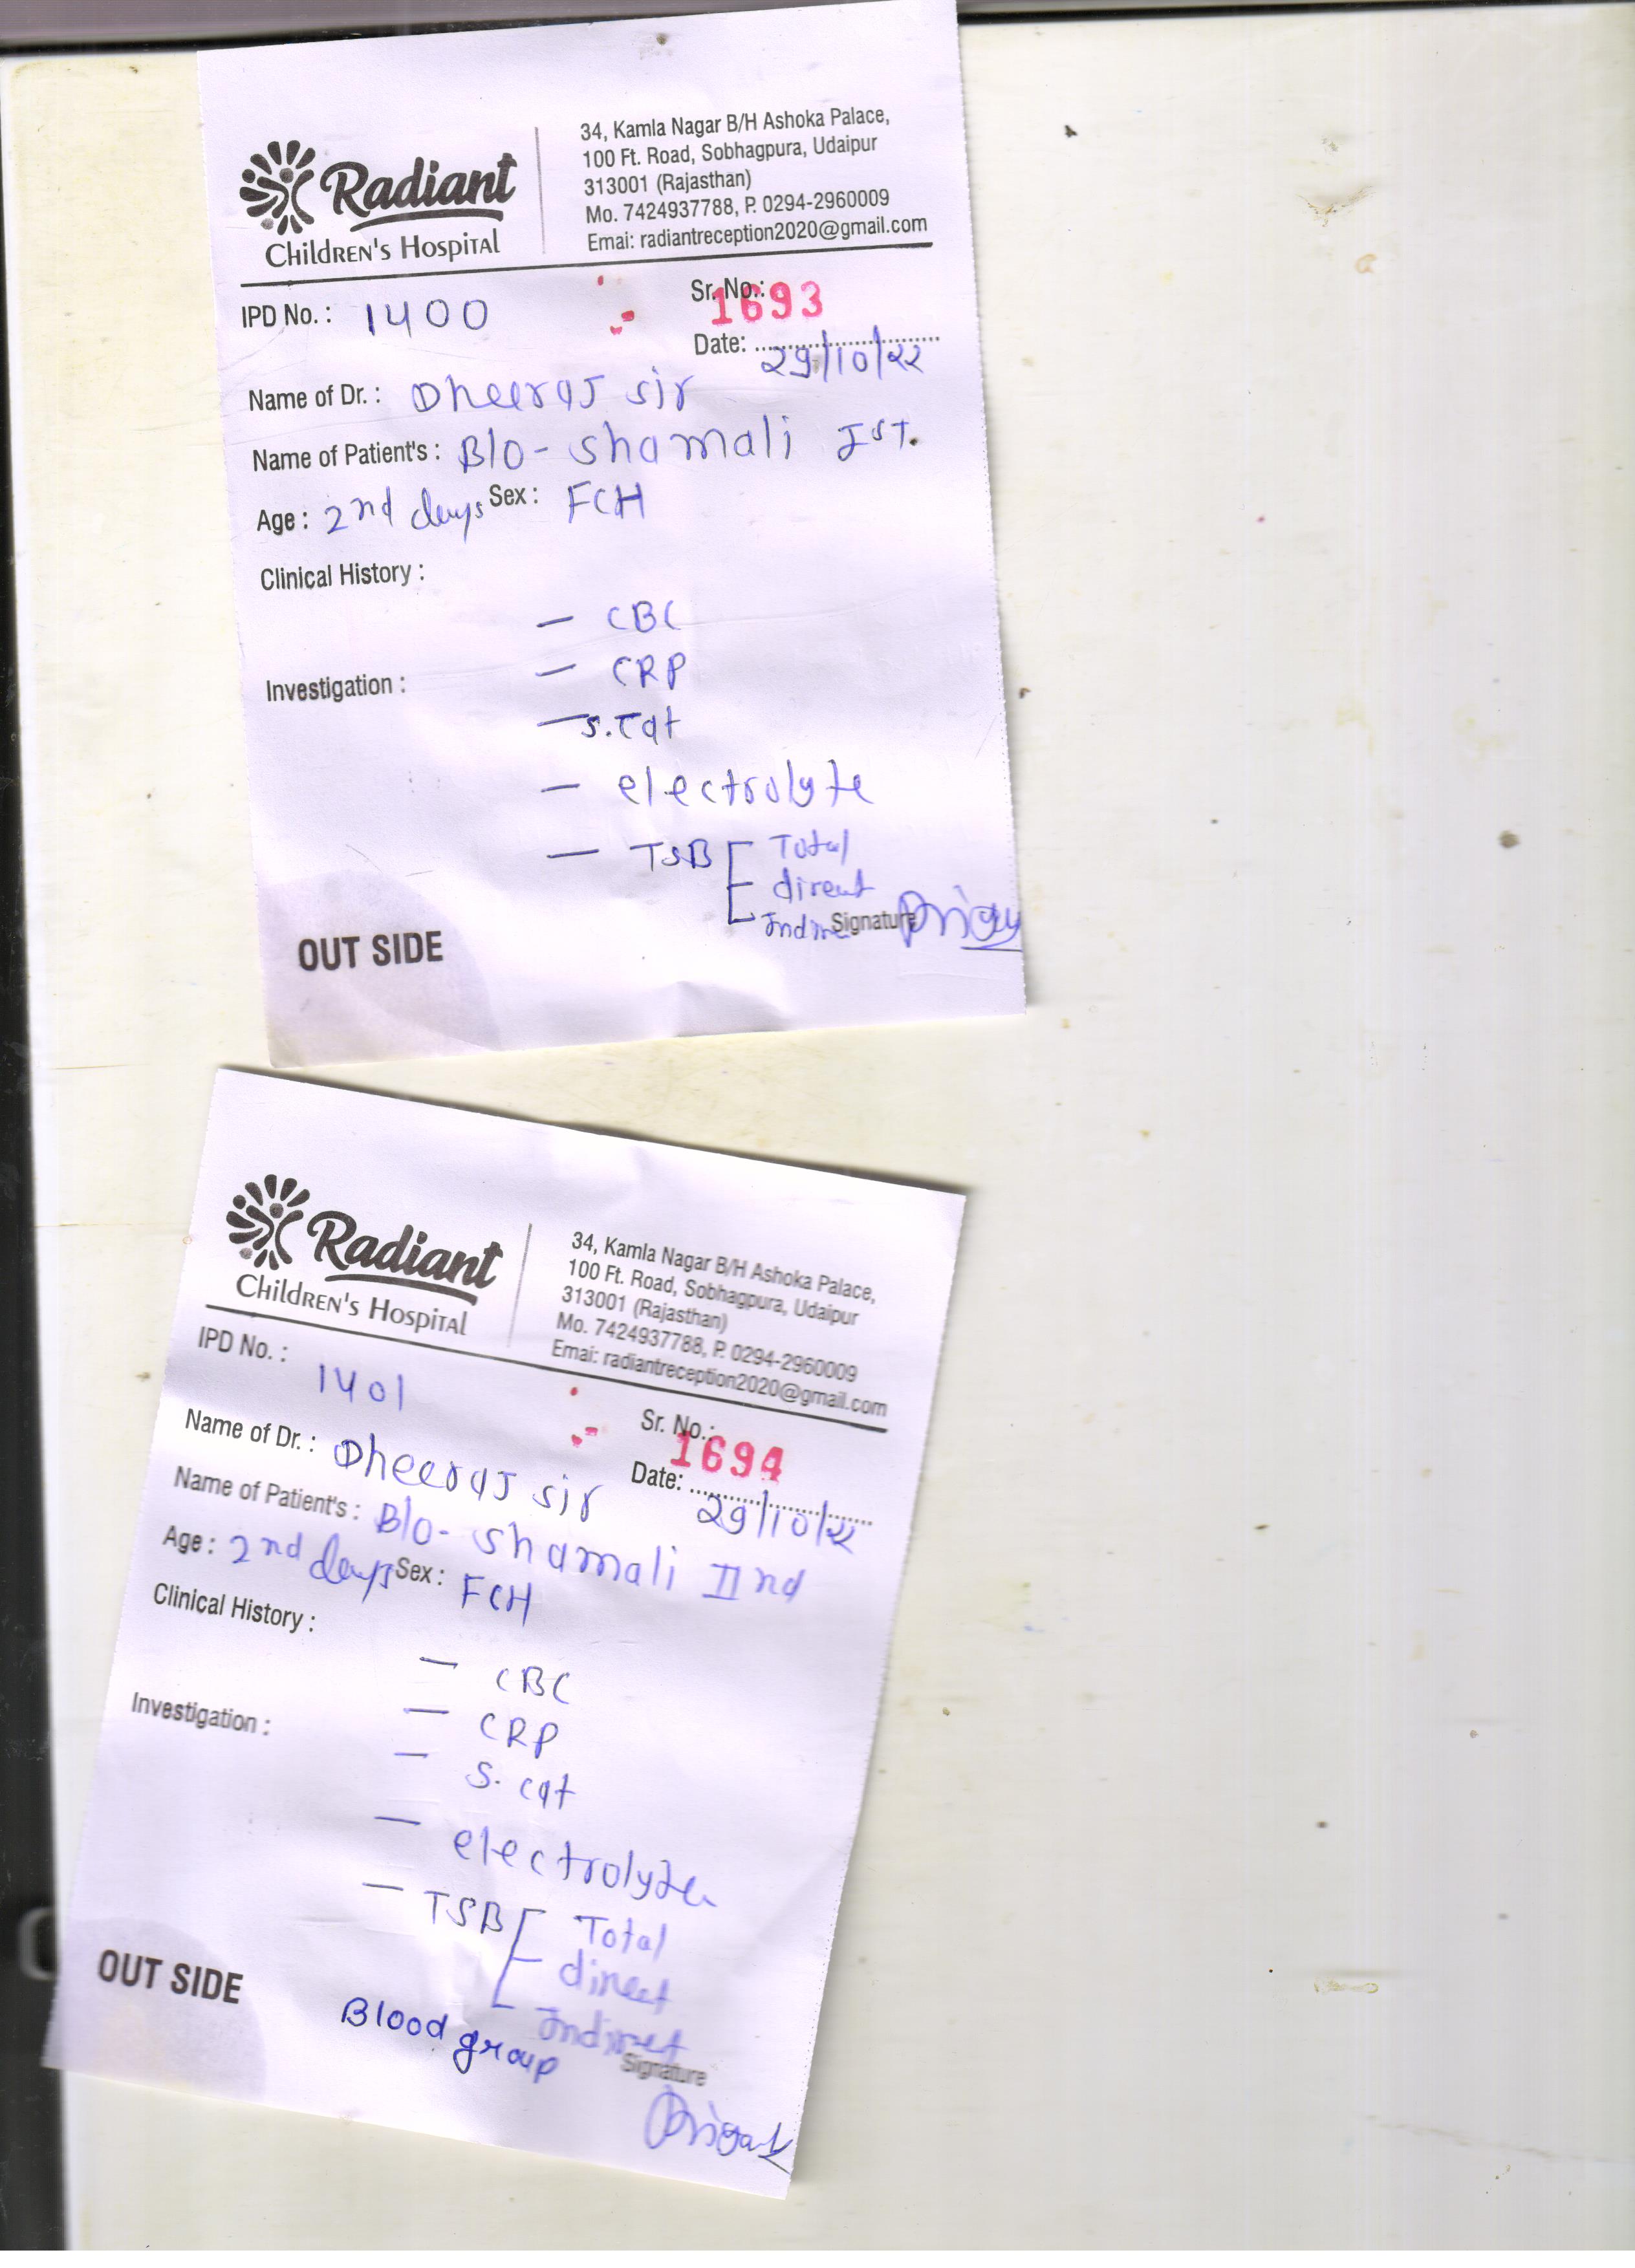 Radiant
Children's Hospital
34, Kamla Nagar B/H Ashoka Palace,
100 Ft. Road, Sobhagpura, Udaipur
313001 (Rajasthan)
Mo. 7424937788, P. 0294-2960009
Emai: radiantreception2020@gmail.com
IPD No. : 1400
Sr. No.: 1693
Date: 29/10/22
Name of Dr. : Dheeraj sir
Name of Patient's : B/o - Shamali Ist.
Age : 2nd days Sex : FCH
Clinical History :
— CBC
— CRP
Investigation :
— S. Cat
— electrolyte
— TSB Total
direct
Signature
OUT SIDE
Radiant
Children's Hospital
34, Kamla Nagar B/H Ashoka Palace,
100 Ft. Road, Sobhagpura, Udaipur
313001 (Rajasthan)
Mo. 7424937788, P. 0294-2960009
Emai: radiantreception2020@gmail.com
IPD No. : 1401
Sr. No.: 1694
Date: 29/10/22
Name of Dr. : Dheeraj sir
Name of Patient's : B/o - Shamali IInd
Age : 2nd days Sex : FCH
Clinical History :
— CBC
Investigation :
— CRP
— S. cat
— electrolyte
— TSB Total
direct
Indirect
OUT SIDE
Blood group
Signature